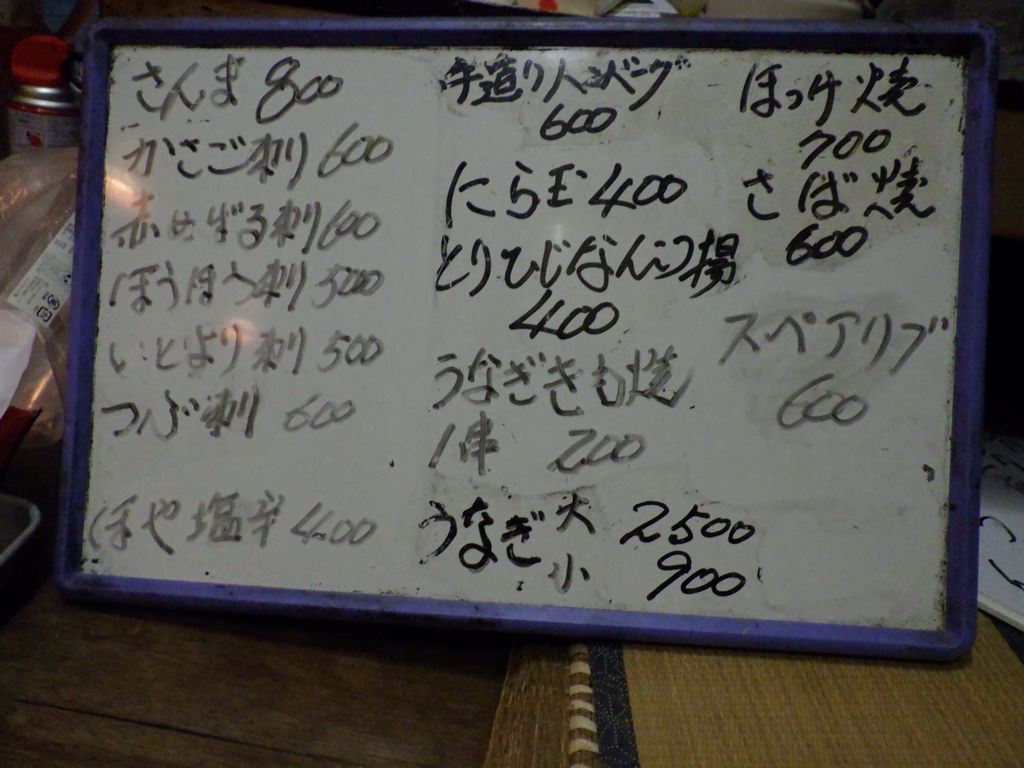 さんま 800
かさご刺 600
赤めばる刺 600
ほうぼう刺 500
いとより刺 500
つぶ刺 600
ほや塩辛 400
手造りハンバーグ
600
にら玉 400
とりひじなんこつ揚
400
うなぎきも焼
1串 200
うなぎ 大 2500
小 900
ほっけ焼
700
さば焼
600
スペアリブ
600